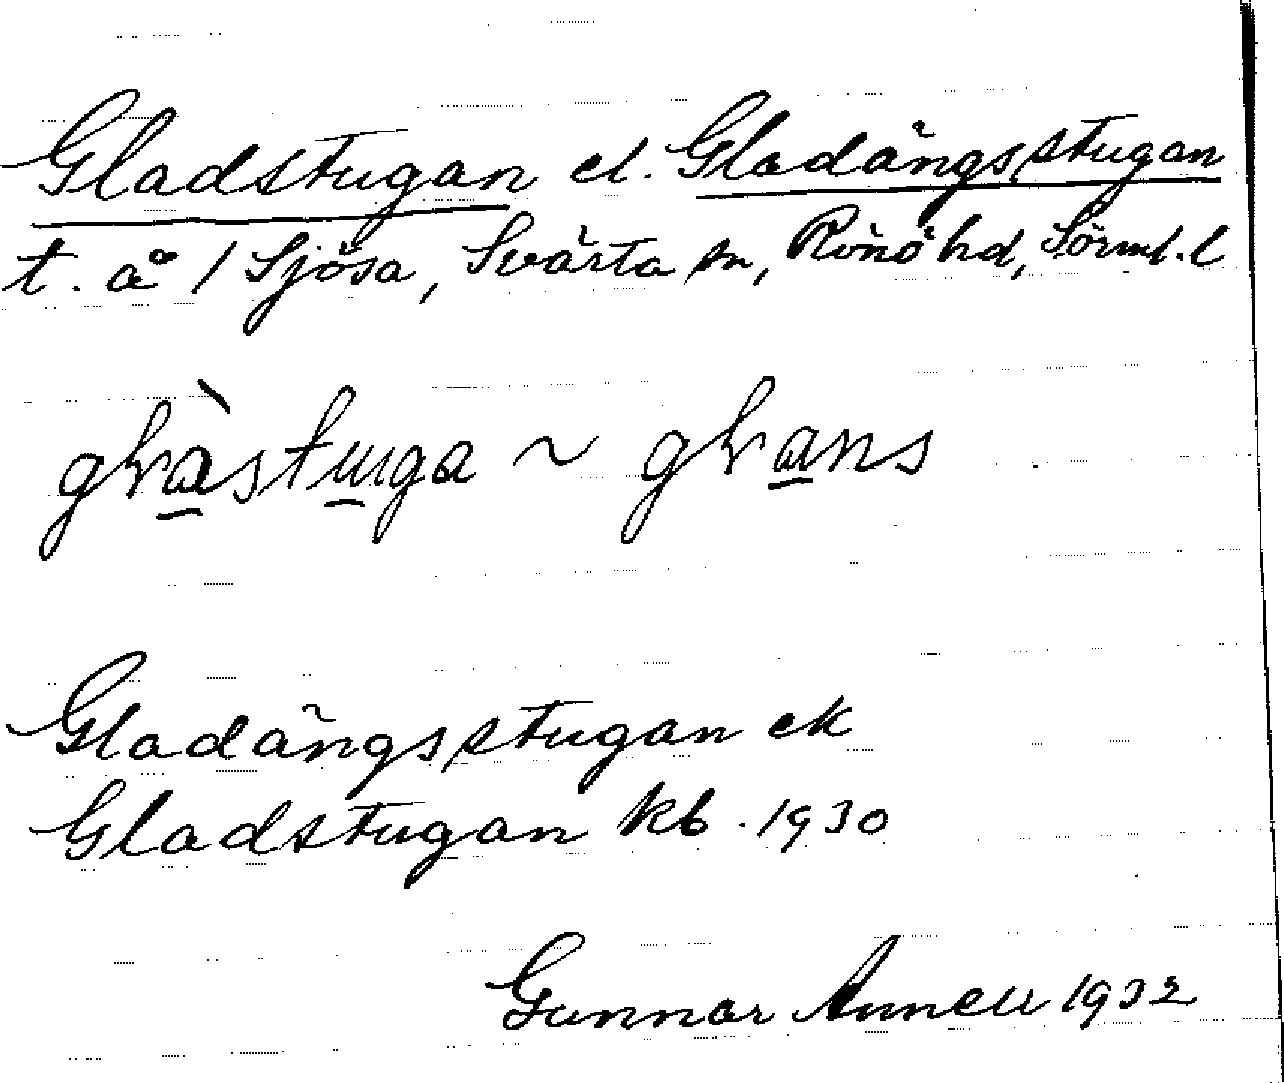 Gladstugan el. Gladängsstugan
t. å / Sjösa, Svärta sn, Rönö hd, Sörml. l
glràstuga ~ glrans
Gladängsstugan ek
Gladstugan kb. 1930
Gunnar Annell 1932